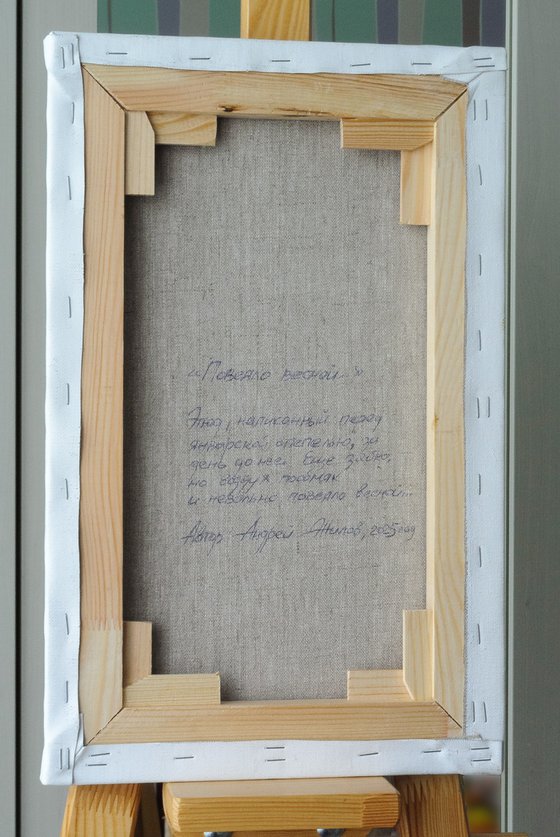 «Повеяло весной...»
Этюд, написанный перед
январской оттепелью, за
день до неё. Ещё зябко,
но воздух
и невольно повеяло весной...
Автор: Андрей Жилов, 2025 год